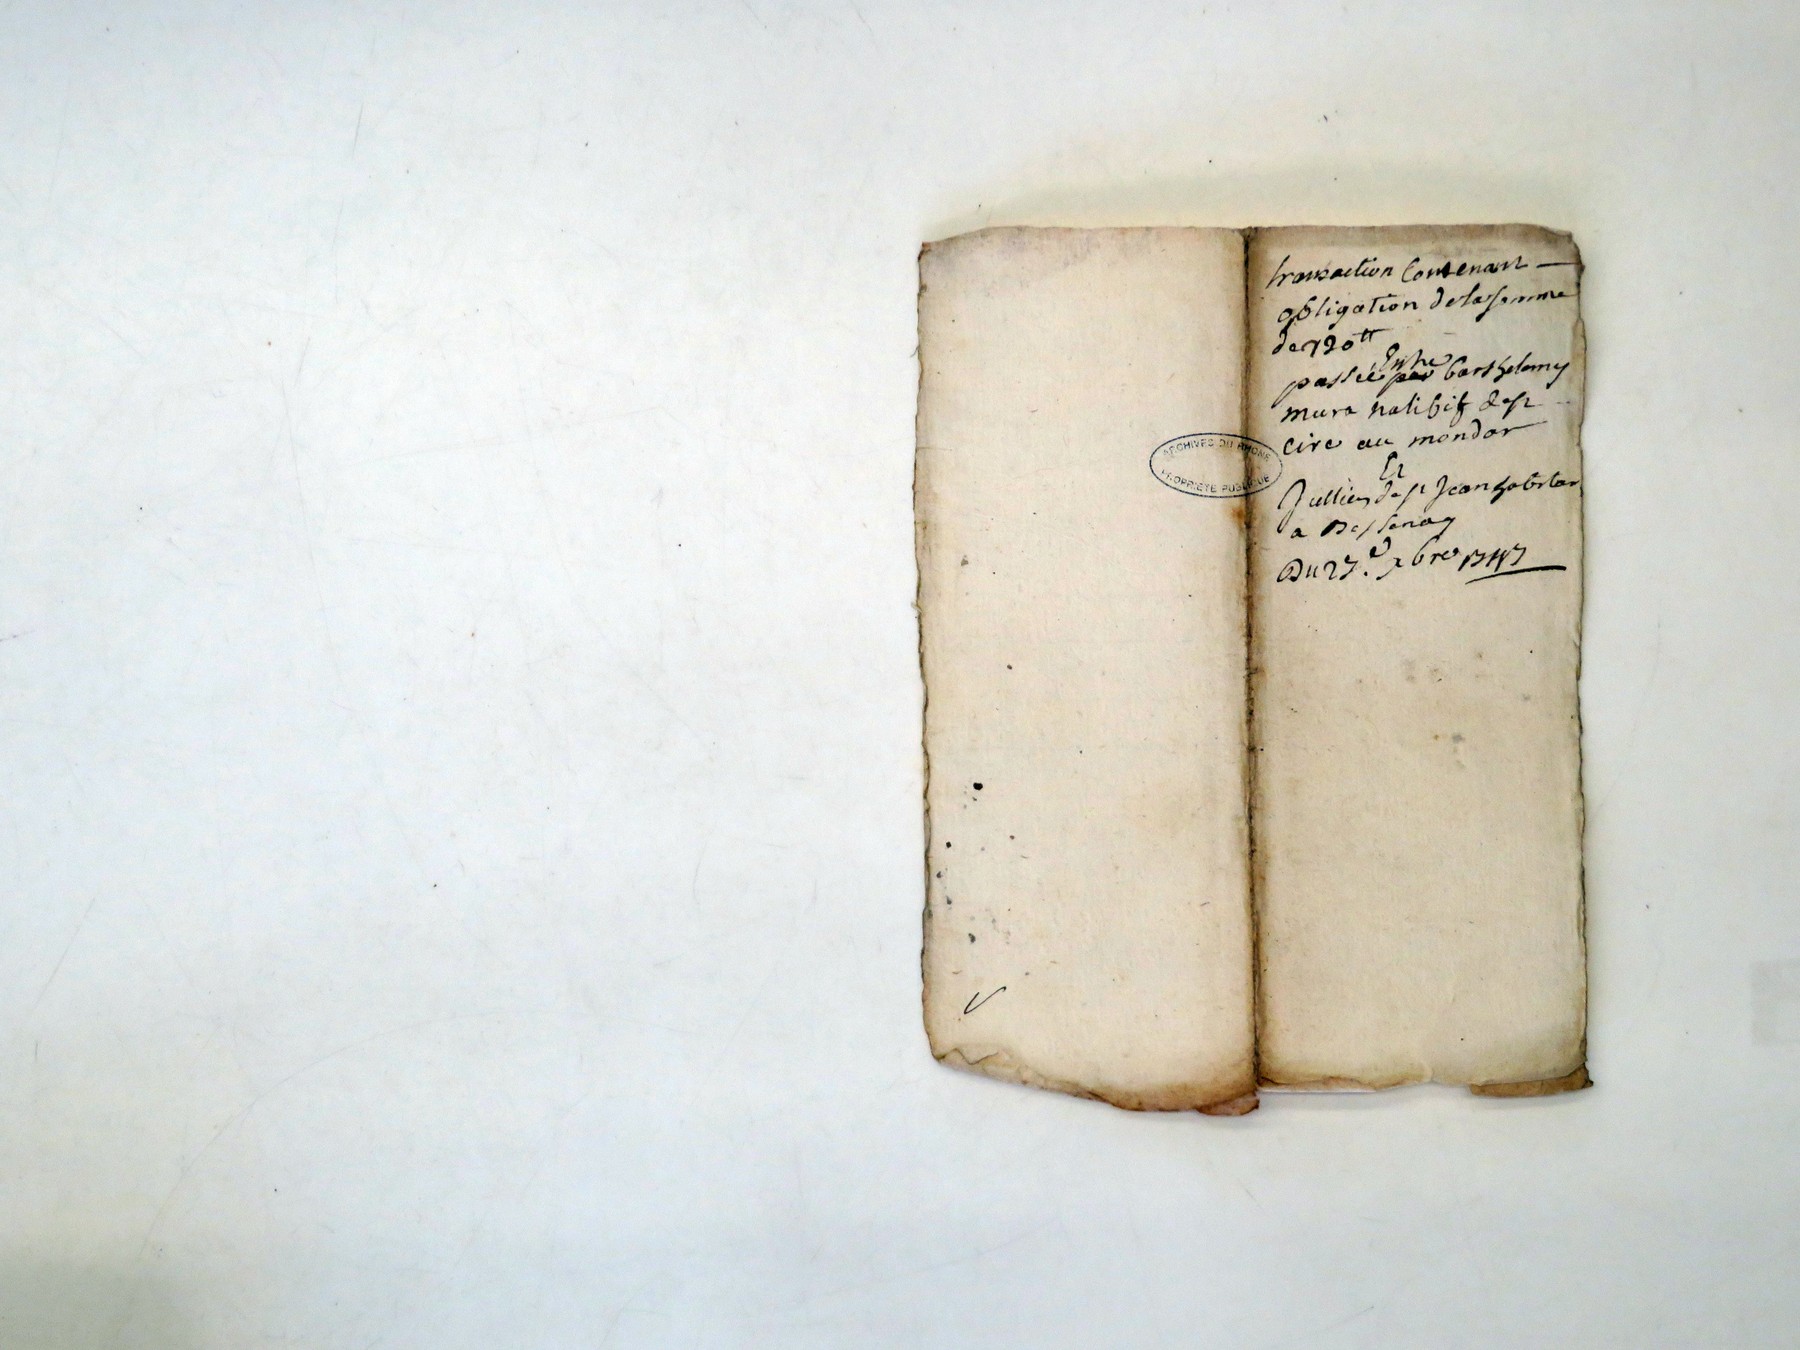 ARCHIVES DU RHONE
PROPRIÉTÉ PUBLIQUE
transaction Contenant
obligation de la somme
de 720ᵗᵗ
Entre
passée par barthelemy
mura natif de st
cire au mondor
Et
Jullien de st Jean habitan
a Bessenay
Du 27.e xbre 1747